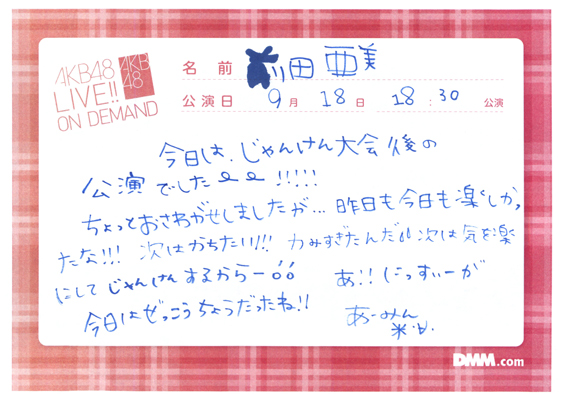 AKB48
LIVE!!
ON DEMAND
AKB
48
名 前 前田 亜美
公演日 9月 18日 18:30 公演
今日は、じゃんけん大会後の
公演でした !!!!!
ちょっとおさわがせしましたが… 昨日も今日も楽しかっ
たな!!! 次はかちたい!!! 力みすぎたんだ 次は気を楽
にして じゃんけんするからー あ!! にっすぃーが
今日はぜっこうちょうだったね!! あーみん
DMM.com